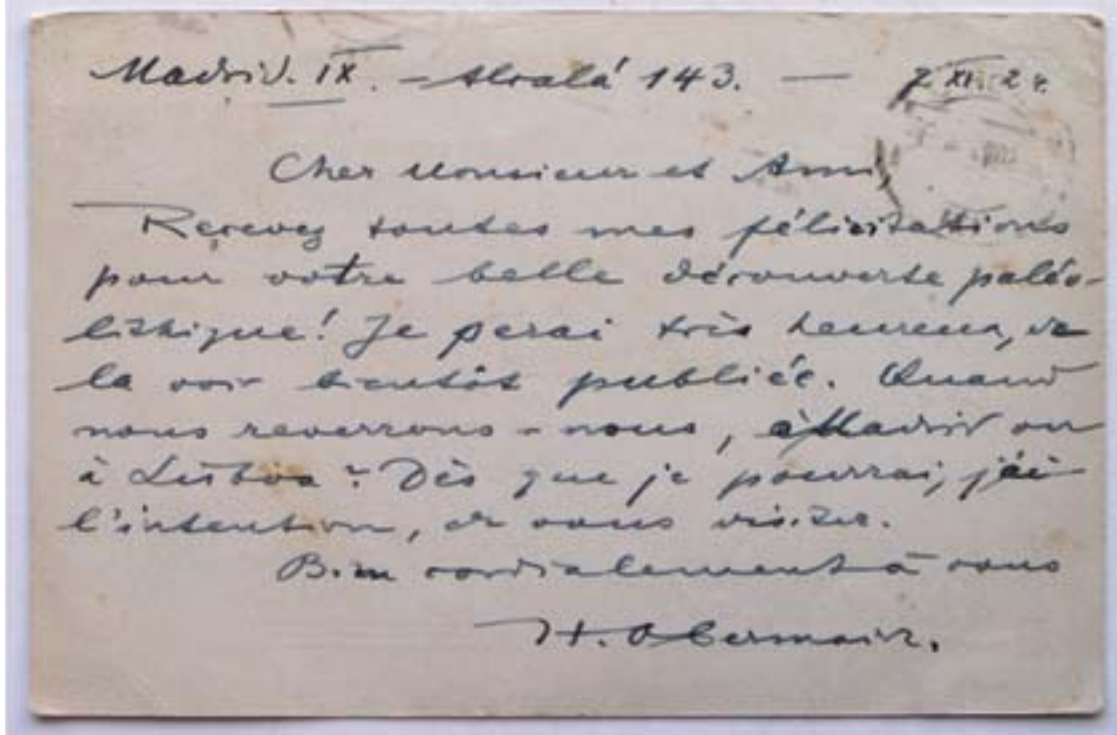 Madrid. IX. – Alcalá 143. — 7 XI. 24.
Cher Monsieur et Ami,
Recevez toutes mes félicitations
pour votre belle découverte paléo-
lithique! Je serai très heureux, de
la voir bientôt publiée. Quand
nous reverrons-nous, à Madrid ou
à Lisboa? Dès que je pourrai, j'ai
l'intention, de vous visiter.
Bien cordialement à vous
H. Obermaier.